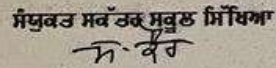 ਸੰਯੁਕਤ ਸਕੱਤਰ ਸਕੂਲ ਸਿੱਖਿਆ
ਸ. ਕੌਰ